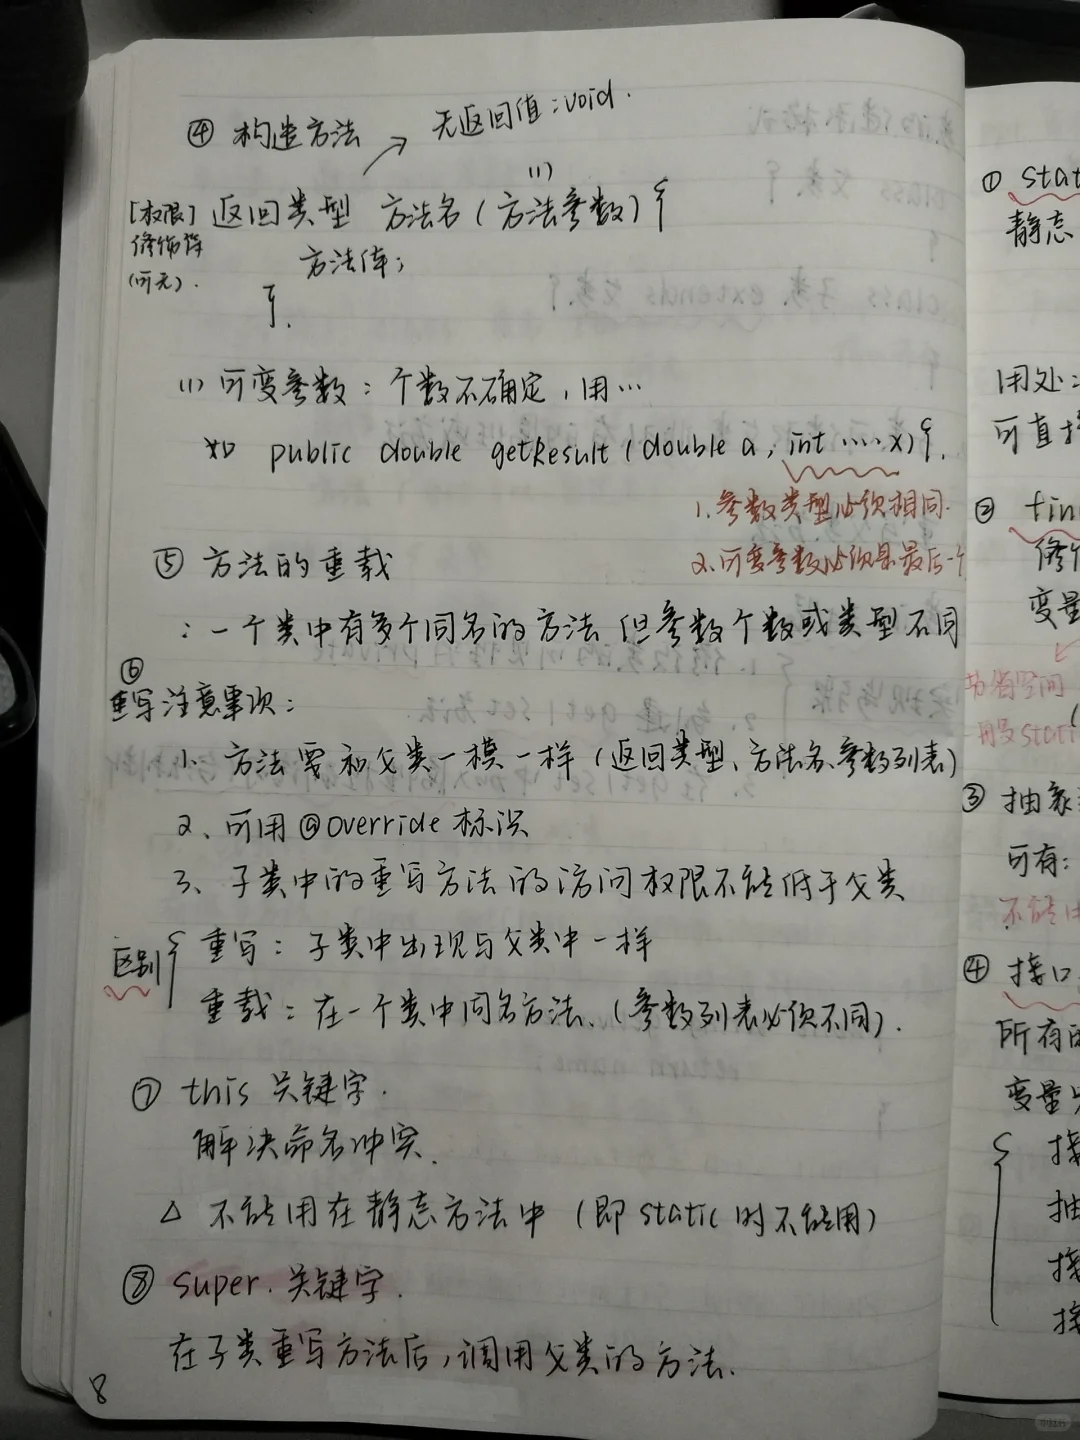 ④ 构造方法 → 无返回值:void.
[权限] 返回类型 方法名(方法参数){
(1)
修饰符
(可无).
方法体;
}.
(1) 可变参数:个数不确定,用…
如 public double getResult(double a, int ····· x){.
1.参数类型必须相同.
2.可变参数必须是最后一个
⑤ 方法的重载
:一个类中有多个同名的方法 但参数个数或类型不同
⑥
重写注意事项:
1、方法要和父类一模一样(返回类型、方法名、参数列表)
2、可用@override标识
3、子类中的重写方法的访问权限不能低于父类
区别{ 重写:子类中出现与父类中一样
重载:在一个类中同名方法、(参数列表必须不同).
⑦ this 关键字.
解决命名冲突.
△ 不能用在静态方法中(即static时不能用)
⑧ super.关键字.
在子类重写方法后,调用父类的方法.
8
① stat
静态
用处:
可直接
② fin
修饰
变量
节省空间
③ 抽象
可有:
不能
④ 接口
所有的
变量
接
抽
接
接